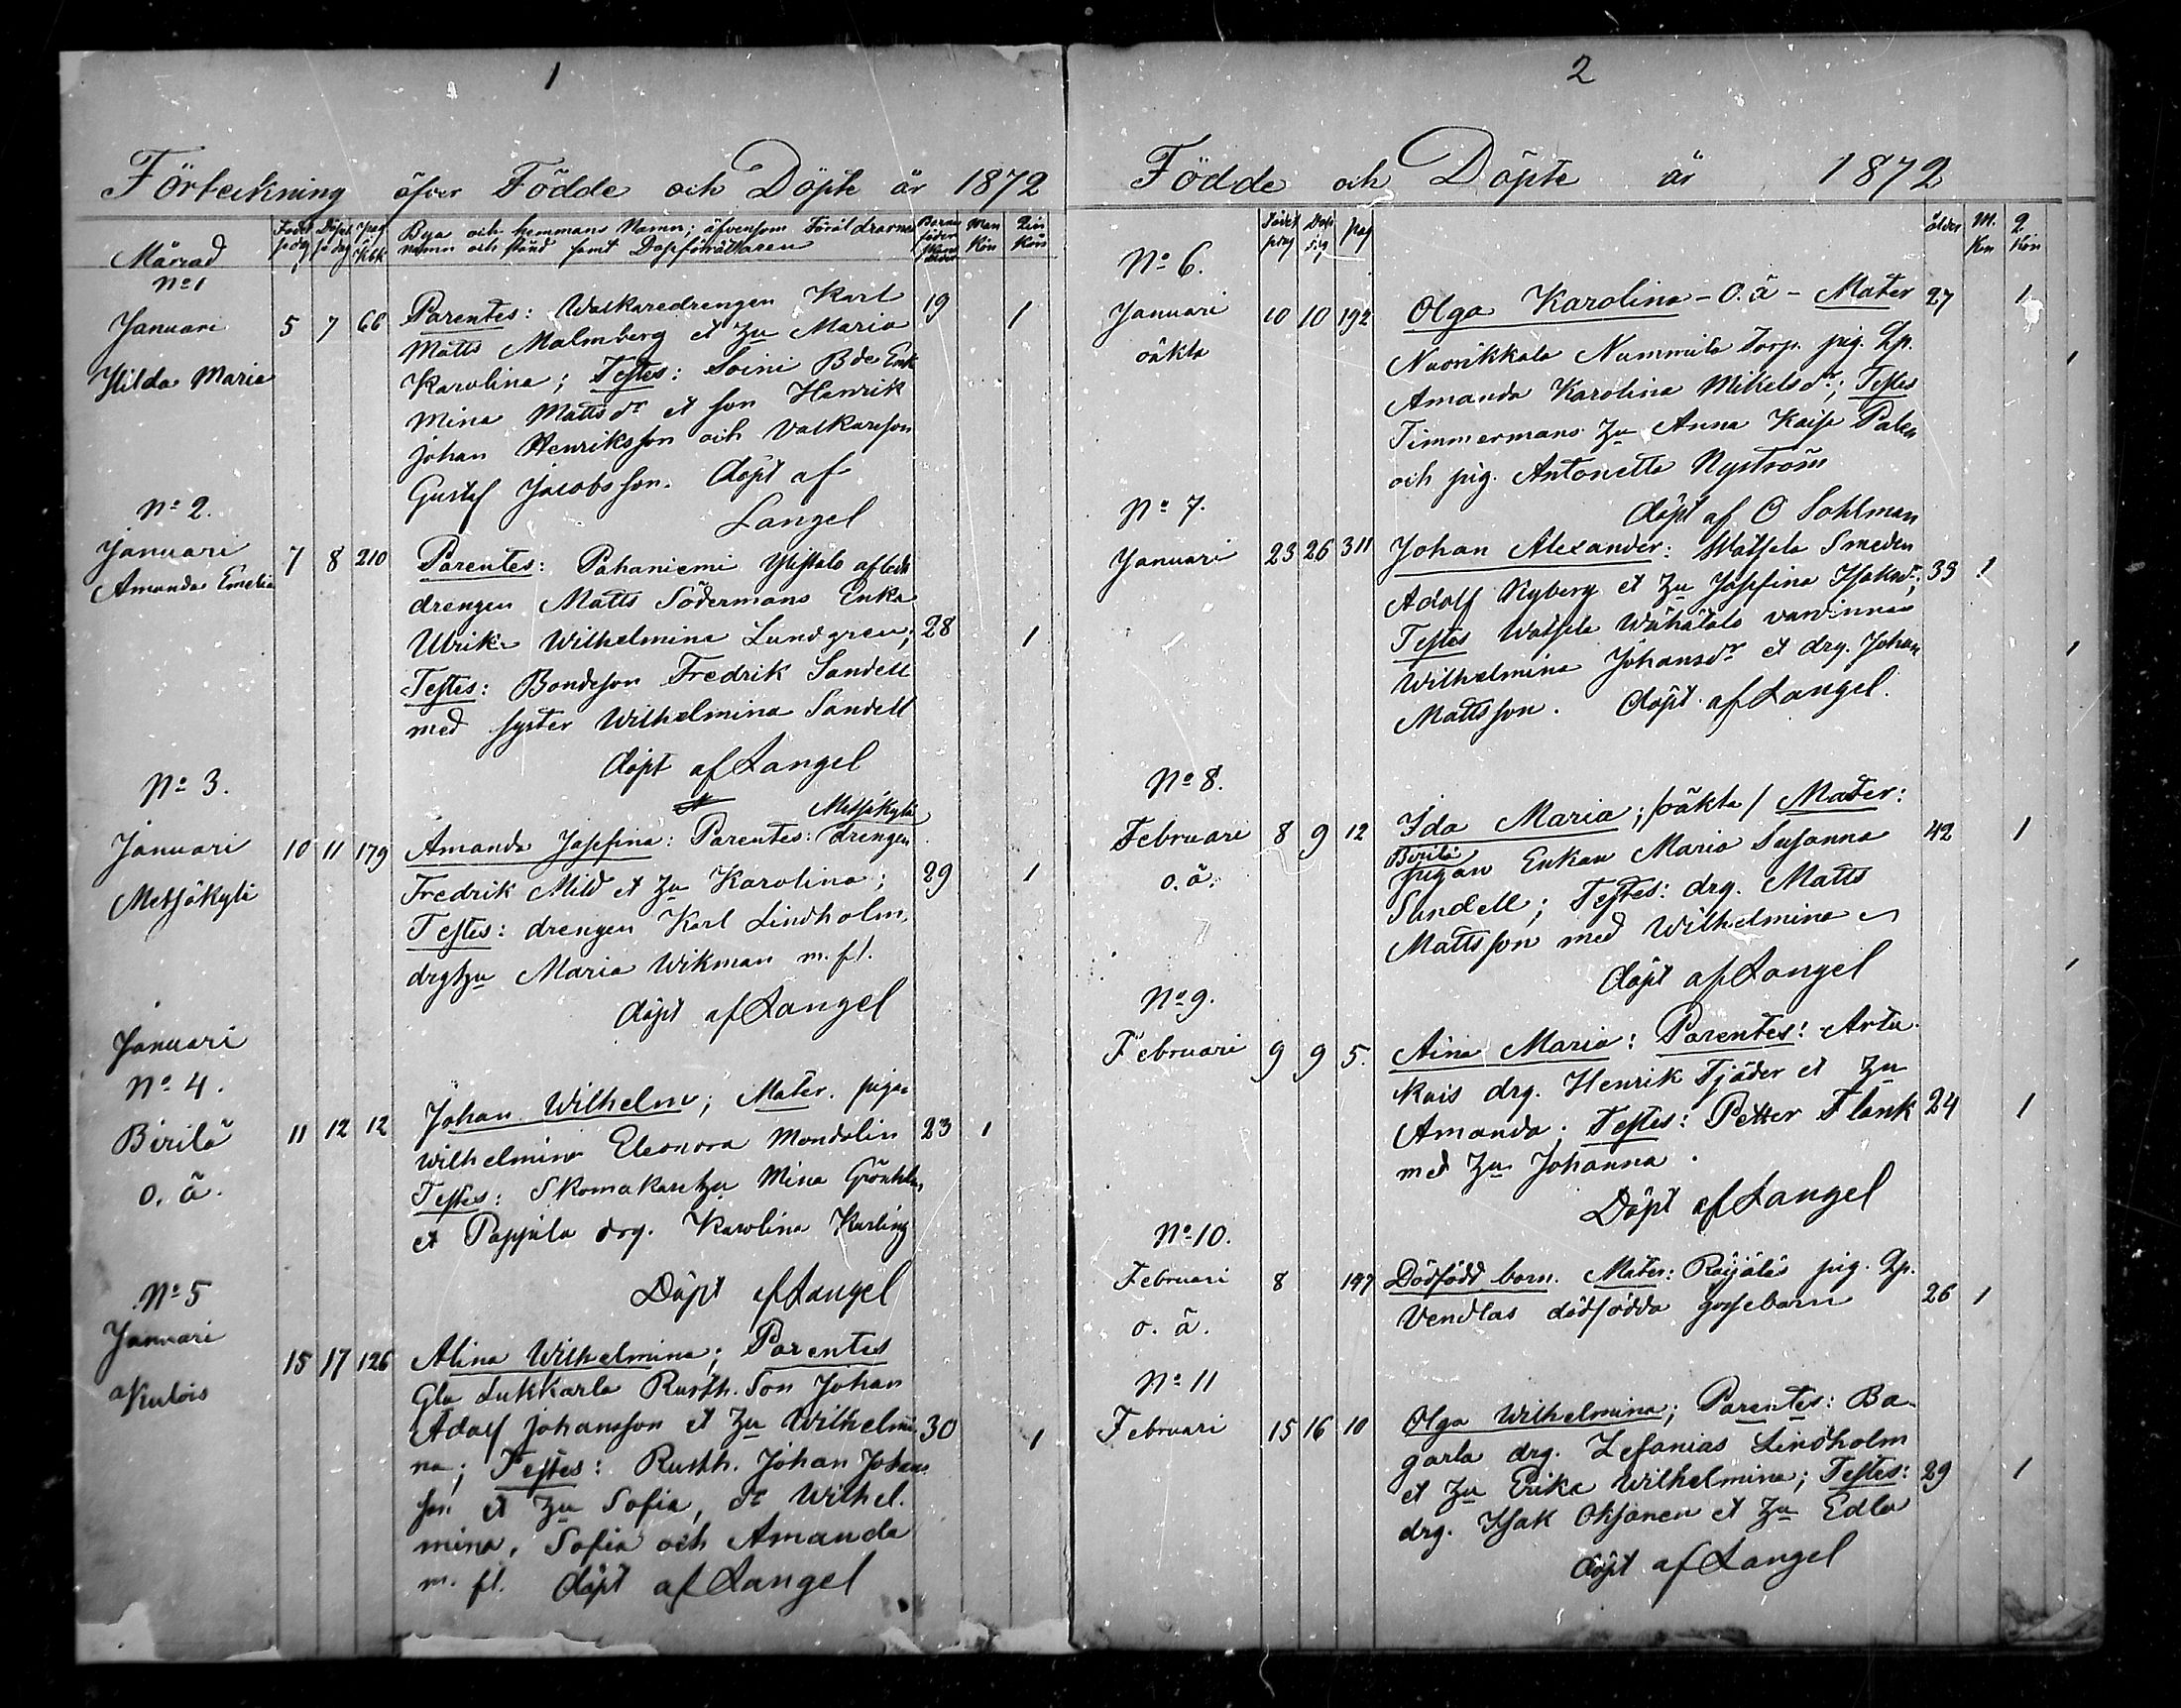 1
Förteckning öfver Födde och Döpte år 1872
Månad
Född
Döpt
pag
Bya och hemmans Namn; äfvensom Föräldrarnes
namn och stånd samt Dopförrättaren
Barna
föder
ålder
Man
Kön
Qin
Kön
No 1
Januari 5 7 66 Parentes: Walkaredrengen Karl 19 1
Matts Malmberg et Hu Maria
Hilda Maria
Karolina; Testes: Soini Bde Enk
Mina Mattsdr et son Henrik
Johan Henriksson och Valkareson
Gustaf Jacobsson. döpt af
Langel
No 2.
Januari 7 8 210 Parentes: Pahaniemi Ylistalo afledn
Amanda Emelia
drengen Matts Södermans Enka
Ulrika Wilhelmina Lundgren; 28 1
Testes: Bondeson Fredrik Sandell
med syster Wilhelmina Sandell
döpt af Langel
No 3.
Metsäkylä
Januari 10 11 179 Amanda Josefina: Parentes: drengen
Metsäkylä
Fredrik Mild et Hu Karolina; 29 1
Testes: drengen Karl Lindholm,
drghu Maria Wikman m. fl.
döpt af Langel
Januari
No 4.
Birilä 11 12 12 Johan Wilhelm; Mater. pigan
o. ä.
Wilhelmina Eleonora Mondolin 23 1
Testes: Skomakarehu Mina
et Pappila drg. Karolina Karling
Döpt af Langel
No 5
Januari 15 17 126 Alina Wilhelmina; Parentes
Kulois
Gla Lukkarla Rusth. Son Johan
Adolf Johansson et Hu Wilhelmi 30 1
na; Testes: Rusth. Johan Johans
son et Hu Sofia, dr Wilhel.
mina, Sofia och Amanda
m. fl. döpt af Langel
2
Födde och Döpte år 1872
Född
Döp
pag
ålder
M.
Kön
Q
Kön
No 6.
Januari 10 10 192 Olga Karolina - O.ä - Mater 27 1
oäkta
Nuorikkala Nummila Torp. pig. Qp.
Amanda Karolina Mikelsdr; Testes
Timmermans Hu Anna Kaisa Palen
och pig. Antonetta Nyström
döpt af O Sohlman
No 7.
Januari 23 26 311 Johan Alexander: Watsela Smeden
Adolf Nyberg et Hu Josefina Isaksdr; 33 1
Testes Watsela Wähätalo värdinnan
Wilhelmina Johansdr et drg. Johan
Mattsson. döpt af Langel.
No 8.
Februari 8 9 12 Ida Maria; /oäkta/ Mater:
o. ä.
Birilä
pigan Enkan Maria Susanna 42 1
Sundell; Testes: drg. Matts
Mattsson med Wilhelmina
döpt af Langel
No 9.
Februari 9 9 5. Aina Maria: Parentes: Artu-
kais drg. Henrik Tjäder et Hu
Amanda; Testes: Petter Flank 24 1
med Hu Johanna.
Döpt af Langel
No 10.
Februari 8 147 Dödfödd barn. Mater: Räyäläs pig. Qp.
o. ä.
Vendlas dödfödda gossebarn 26 1
No 11
Februari 15 16 10 Olga Wilhelmina; Parentes: Ba-
garla drg. Zefanias Lindholm
et Hu Erika Wilhelmina; Testes: 29 1
drg. Isak Oksanen et Hu Edla
döpt af Langel